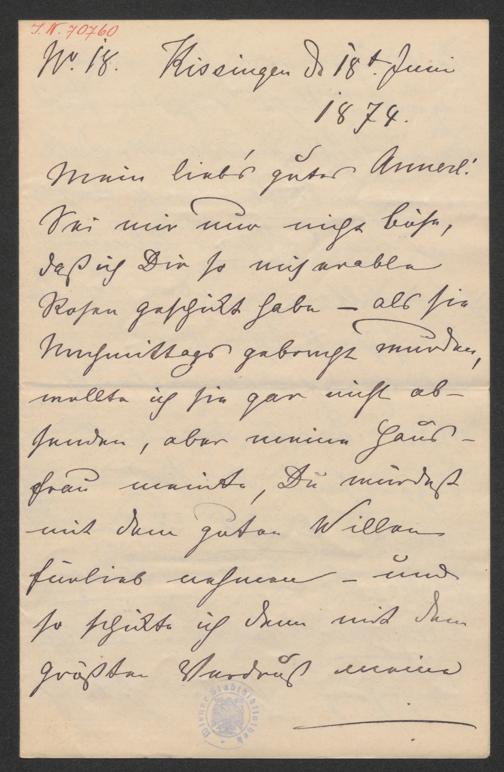 I.N. 70760
No. 18. Kissingen d 18t. Juni
1874.
Mein lieb's gutes Annerl!
Sei mir nur nicht böse,
daß ich Dir so miserable
Rosen geschickt habe – als sie
Nachmittags gebracht wurden,
wollte ich sie gar nicht ab-
senden, aber meine Haus-
frau meinte, Du würdest
mit dem guten Willen
fürlieb nehmen – und
so schickte ich denn mit dem
größten Verdruß meine
Wiener Stadtbibliothek